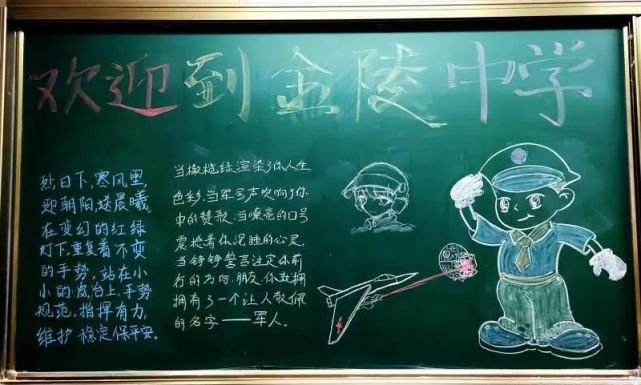 欢迎到金陵中学
烈日下,寒风里,
迎朝阳,送晨曦,
在变幻的红绿
灯下,重复着不变
的手势,站在小
小的岗台上,手势
规范,指挥有力,
维护 稳定保平安。
当橄榄绿渲染了你人生
色彩,当军号声吹响了你
中的赞歌,当嘹亮的口号
震撼着你沉睡的心灵,
当铮铮誓言注定你前
行的方向,朋友,你就拥
拥有了一个让人敬佩
的名字——军人。